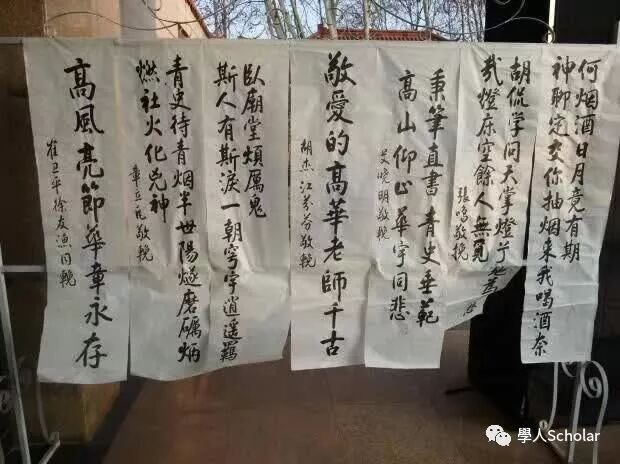 神聊定交你抽烟来我喝酒奈
何烟酒日月竟有期
胡侃学问天掌燈于
哉燈床空餘人無覓
張鳴敬輓
秉筆直書 青史垂範
高山仰止 華宇同悲
晓明敬輓
敬愛的高華老師千古
胡杰 江芬敬輓
臥廟堂煩厲鬼
斯人有斯淚一朝寄宇逍遥羈
青史待青烟半世陽燧磨礪炳
燃社火化兇神
章立凡敬輓
高風亮節華章永存
崔卫平徐友渔同輓
學人Scholar